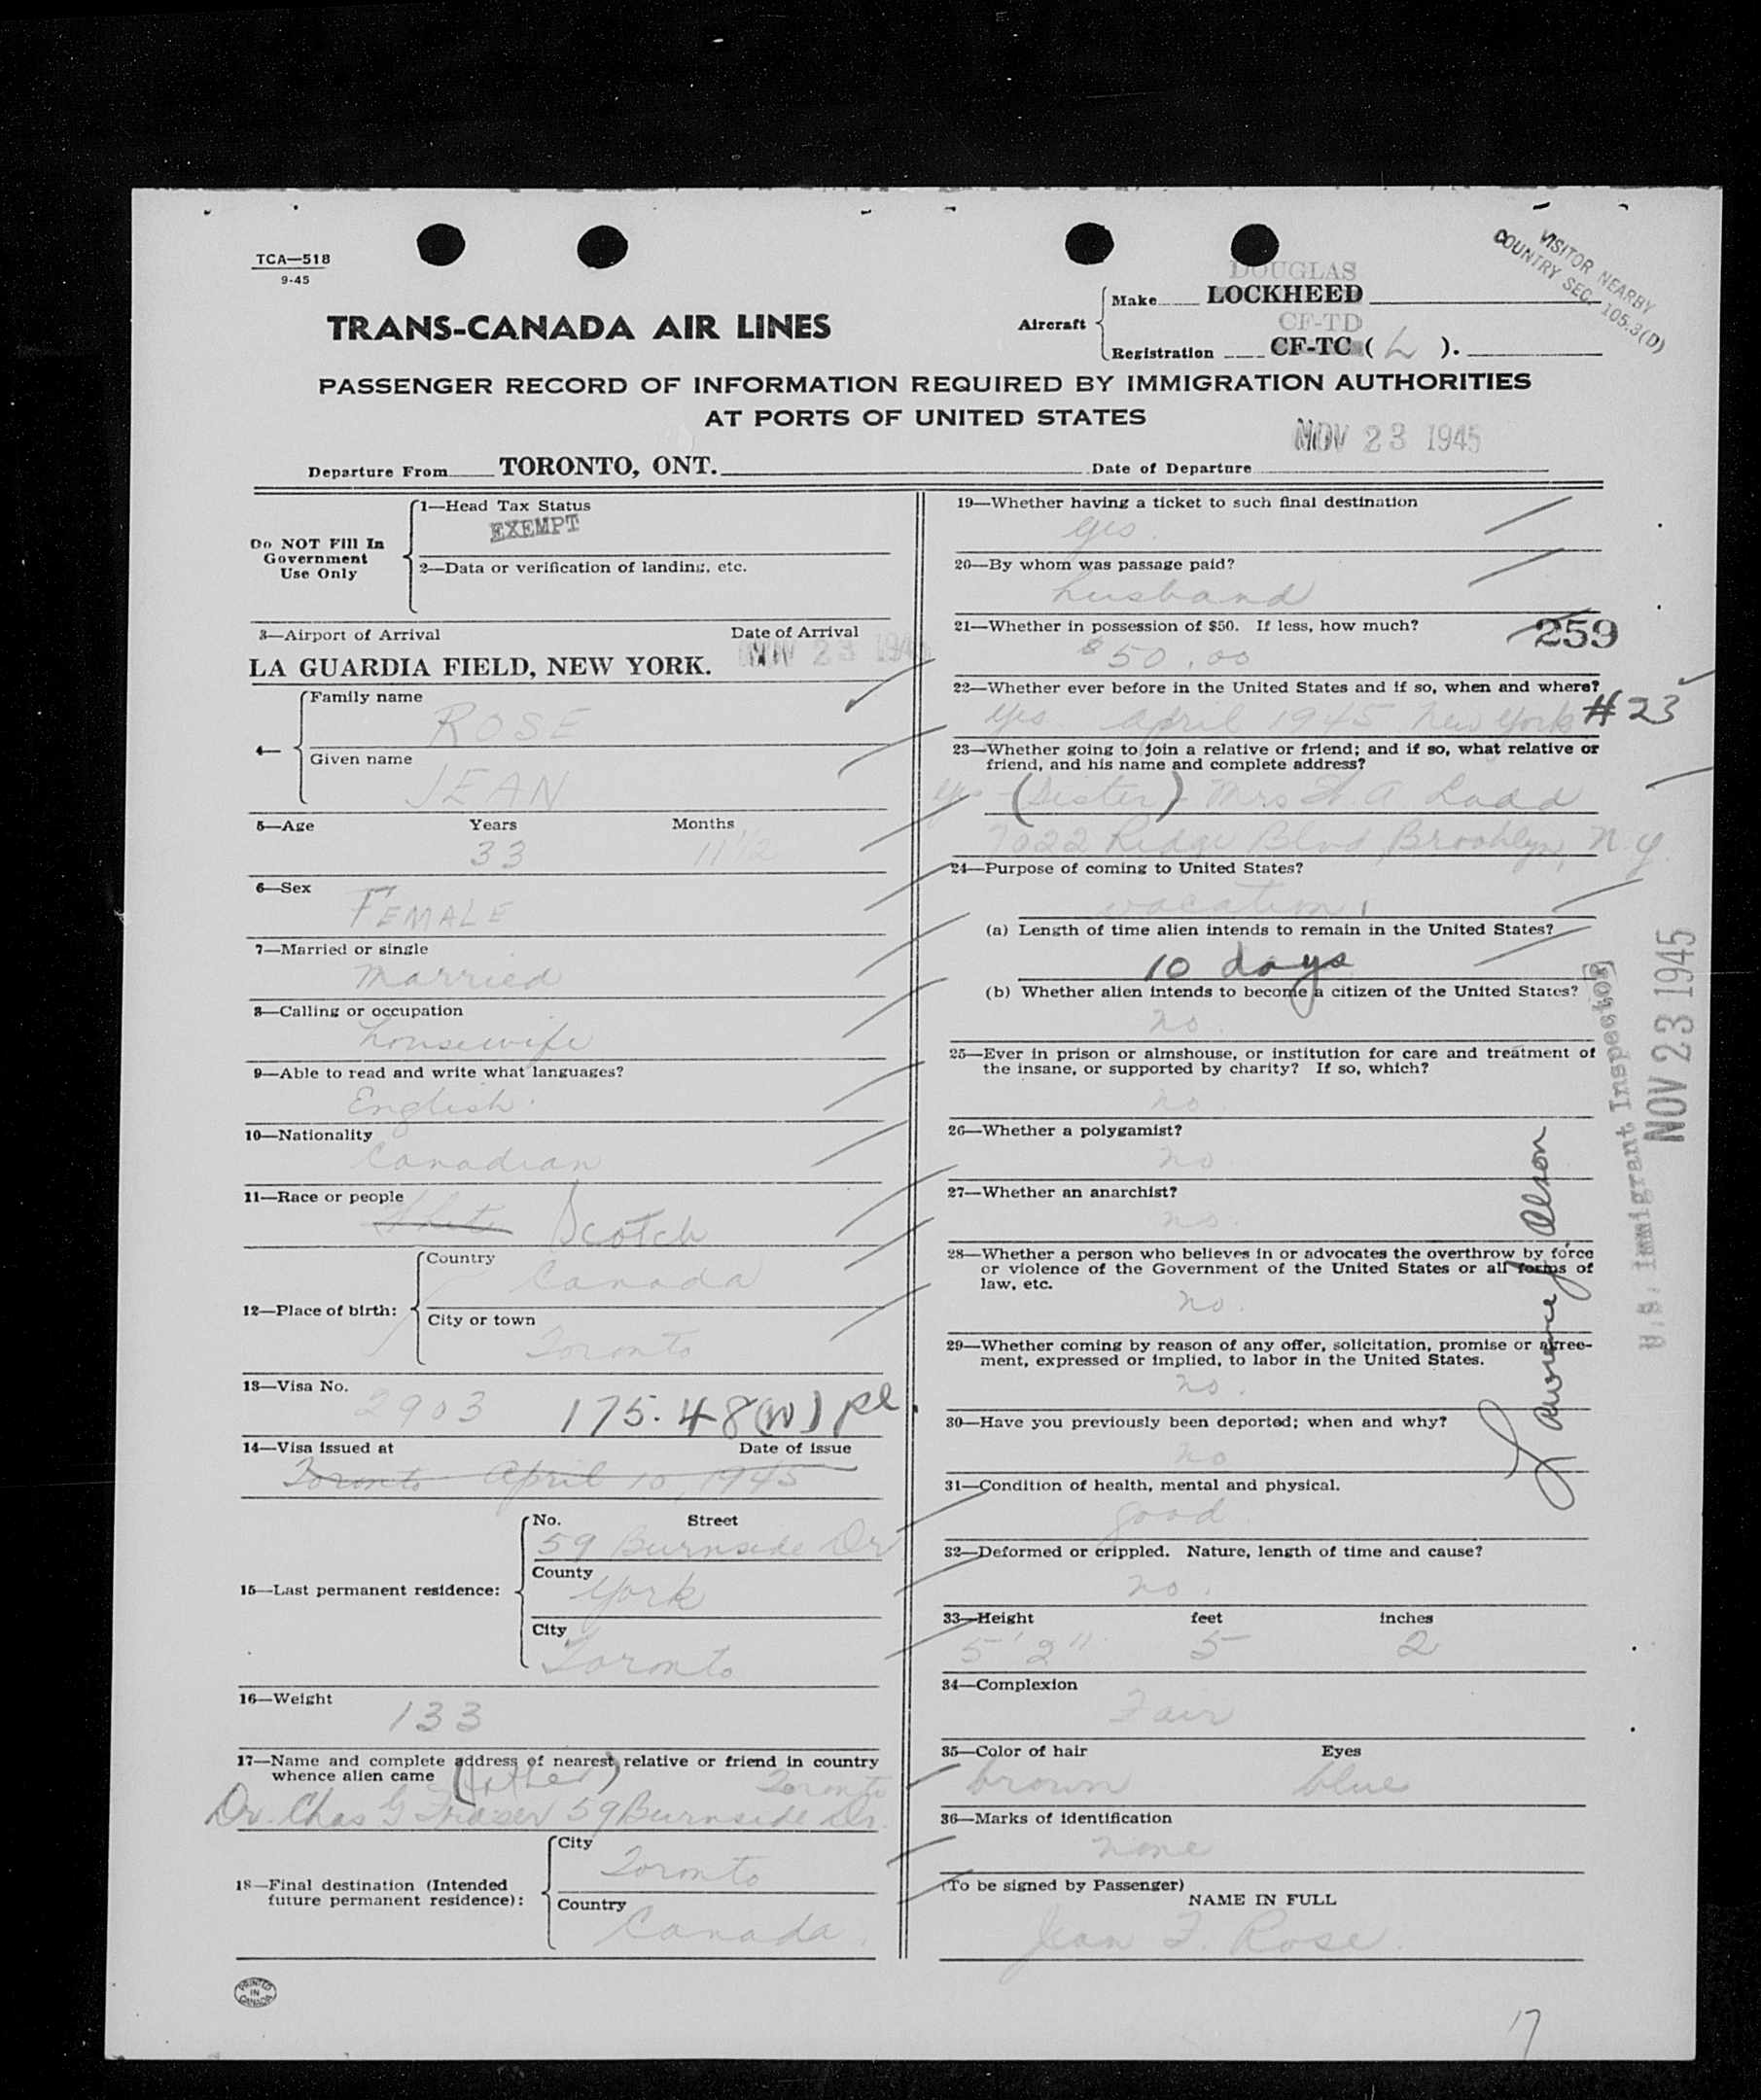 TCA—518
9-45
VISITOR NEARBY
COUNTRY SEC. 105.3(D)
TRANS-CANADA AIR LINES
Aircraft
DOUGLAS
Make LOCKHEED
CF-TD
Registration CF-TC ( L ).
PASSENGER RECORD OF INFORMATION REQUIRED BY IMMIGRATION AUTHORITIES
AT PORTS OF UNITED STATES
Departure From TORONTO, ONT. Date of Departure NOV 23 1945
Do NOT Fill In
Government
Use Only
1—Head Tax Status
EXEMPT
2—Data or verification of landing, etc.
3—Airport of Arrival Date of Arrival
LA GUARDIA FIELD, NEW YORK. NOV 23 1945
4—
Family name
ROSE
Given name
JEAN
5—Age Years Months
33 11 1/2
6—Sex
FEMALE
7—Married or single
Married
8—Calling or occupation
housewife
9—Able to read and write what languages?
English.
10—Nationality
Canadian
11—Race or people
White Scotch
12—Place of birth:
Country
Canada
City or town
Toronto
13—Visa No.
2903 175.48(W)
14—Visa issued at Date of issue
Toronto April 10, 1945
15—Last permanent residence:
No. Street
59 Burnside Dr
County
York
City
Toronto
16—Weight
133
17—Name and complete address of nearest relative or friend in country
whence alien came Toronto
Dr. Chas G Fraser 59 Burnside Dr.
18—Final destination (Intended
future permanent residence):
City
Toronto
Country
Canada.
PRINTED
IN
CANADA
19—Whether having a ticket to such final destination
yes.
20—By whom was passage paid?
husband
21—Whether in possession of $50. If less, how much?
$50.00
259
22—Whether ever before in the United States and if so, when and where?
yes April 1945 New York # 23
23—Whether going to join a relative or friend; and if so, what relative or
friend, and his name and complete address?
yes (Sister) Mrs A Ladd
7022 Ridge Blvd, Brooklyn, N.Y.
24—Purpose of coming to United States?
vacation.
(a) Length of time alien intends to remain in the United States?
10 days
(b) Whether alien intends to become a citizen of the United States?
no.
25—Ever in prison or almshouse, or institution for care and treatment of
the insane, or supported by charity? If so, which?
no.
26—Whether a polygamist?
no
27—Whether an anarchist?
no.
28—Whether a person who believes in or advocates the overthrow by force
or violence of the Government of the United States or all forms of
law, etc.
no.
29—Whether coming by reason of any offer, solicitation, promise or agree-
ment, expressed or implied, to labor in the United States.
no.
30—Have you previously been deported; when and why?
no
31—Condition of health, mental and physical.
good
32—Deformed or crippled. Nature, length of time and cause?
no.
33—Height feet inches
5' 2" 5 2
34—Complexion
Fair
35—Color of hair Eyes
brown blue
36—Marks of identification
none
(To be signed by Passenger)
NAME IN FULL
Jean F. Rose.
Lawrence J Olson
U.S. Immigrant Inspector
NOV 23 1945
17